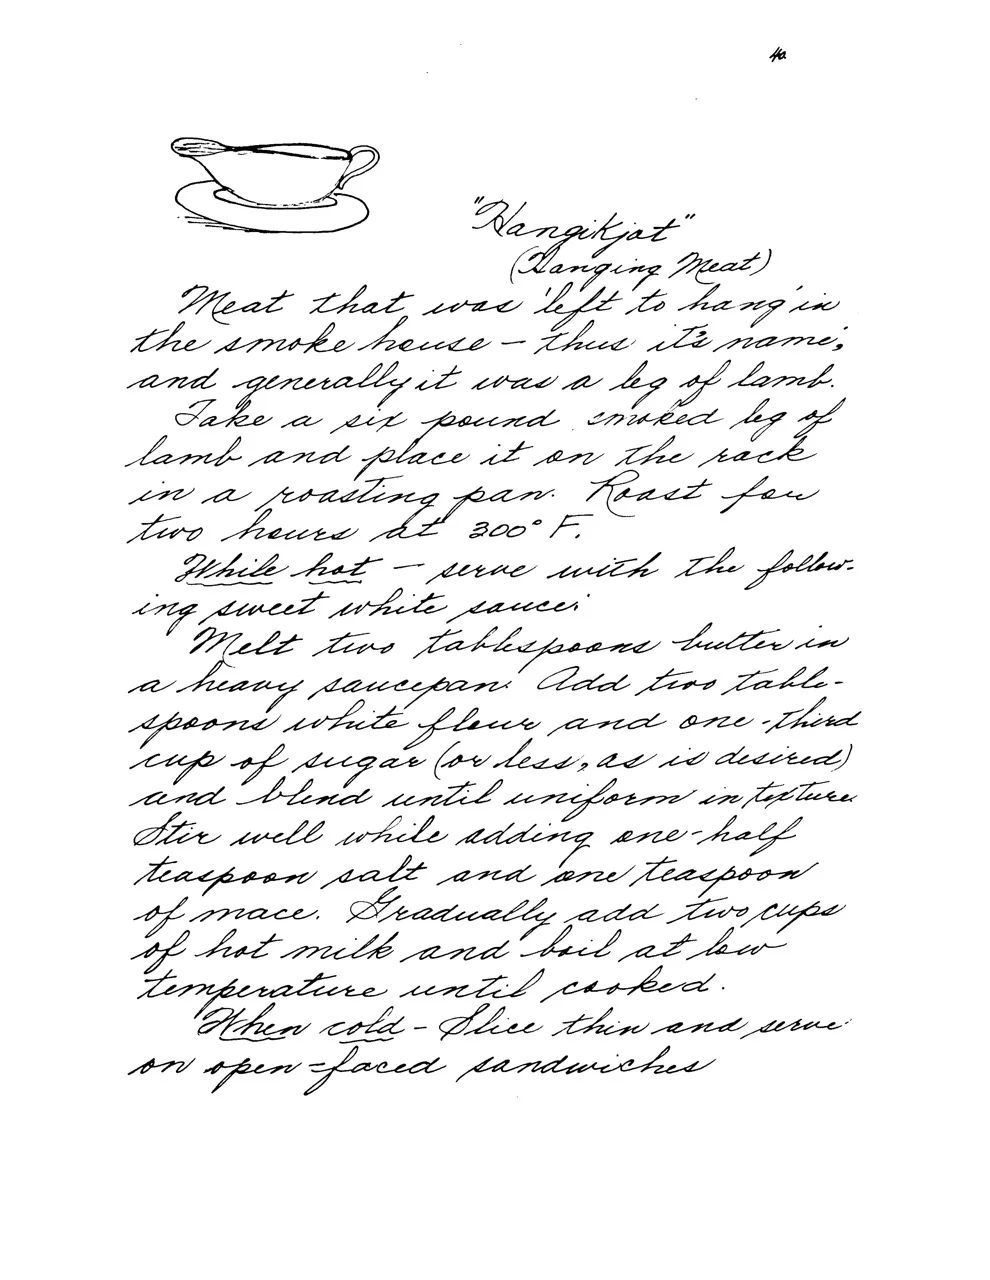 40.
"Hangikjot"
(Hanging Meat)
Meat that was 'left to hang' in
the smoke house – thus it's name;
and generally it was a leg of lamb.
Take a six pound smoked leg of
lamb and place it on the rack
in a roasting pan. Roast for
two hours at 300° F.
While hot – serve with the follow-
ing sweet white sauce:
Melt two tablespoons butter in
a heavy saucepan. Add two table-
spoons white flour and one-third
cup of sugar (or less, as is desired)
and blend until uniform in texture.
Stir well while adding one-half
teaspoon salt and one teaspoon
of mace. Gradually add two cups
of hot milk and boil at low
temperature until cooked.
When cold – Slice thin and serve
on open-faced sandwiches